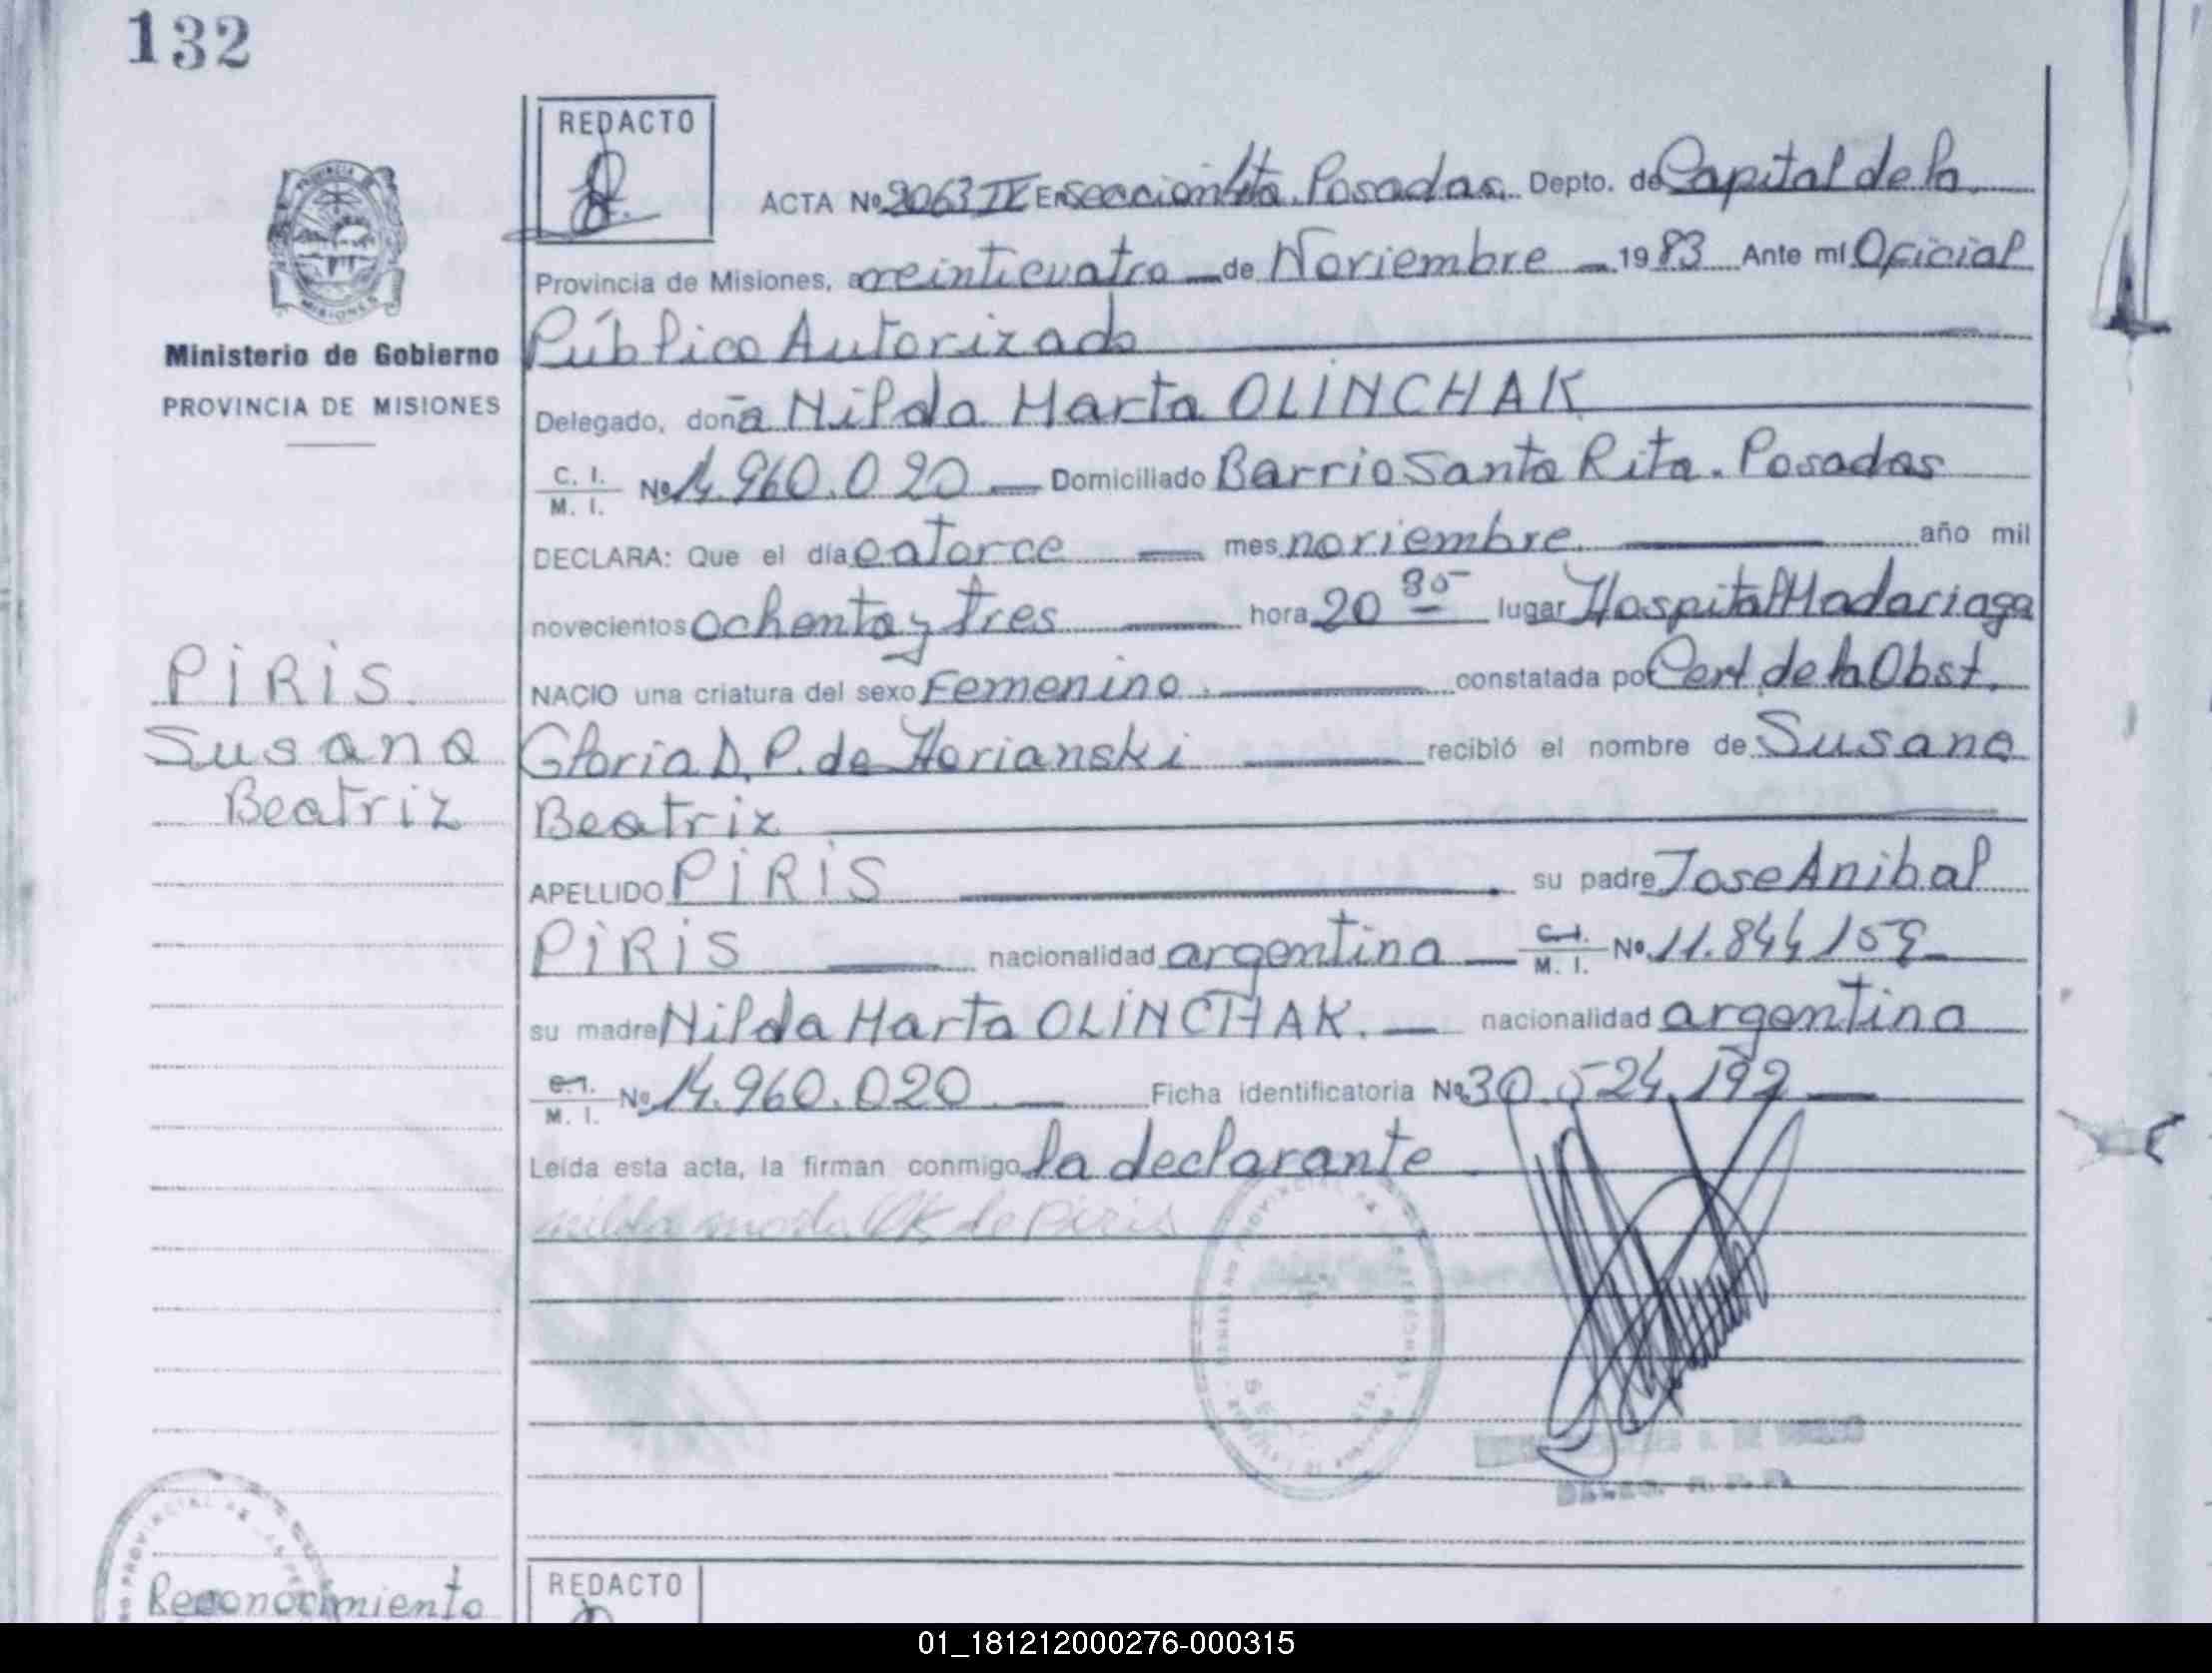 132
REDACTO
ACTA Nº 2063 IV En sección 4ta. Posadas. Depto. de Capital de la
Provincia de Misiones, a veinticuatro de Noviembre 1983 Ante mí Oficial
Público Autorizado
Ministerio de Gobierno
PROVINCIA DE MISIONES
Delegado, doña Nilda Marta OLINCHAK
C. I.
M. I. Nº 14.960.020 Domiciliado Barrio Santa Rita. Posadas
DECLARA: Que el día catorce mes noviembre año mil
novecientos ochenta y tres hora 20 30 lugar Hospital Madariaga
NACIO una criatura del sexo Femenino constatada por Cert. de la Obst.
Gloria D. P. de Horianski recibió el nombre de Susana
Beatriz
PIRIS
Susana
Beatriz
APELLIDO PIRIS su padre Jose Anibal
PIRIS nacionalidad argentina C. I. M. I. Nº 11.844.159
su madre Nilda Marta OLINCHAK. nacionalidad argentina
C. I. M. I. Nº 14.960.020 Ficha identificatoria Nº 30.524.192
Leída esta acta, la firman conmigo la declarante
nilda marta OK de Piris
Reconocimiento
REDACTO
01_181212000276-000315